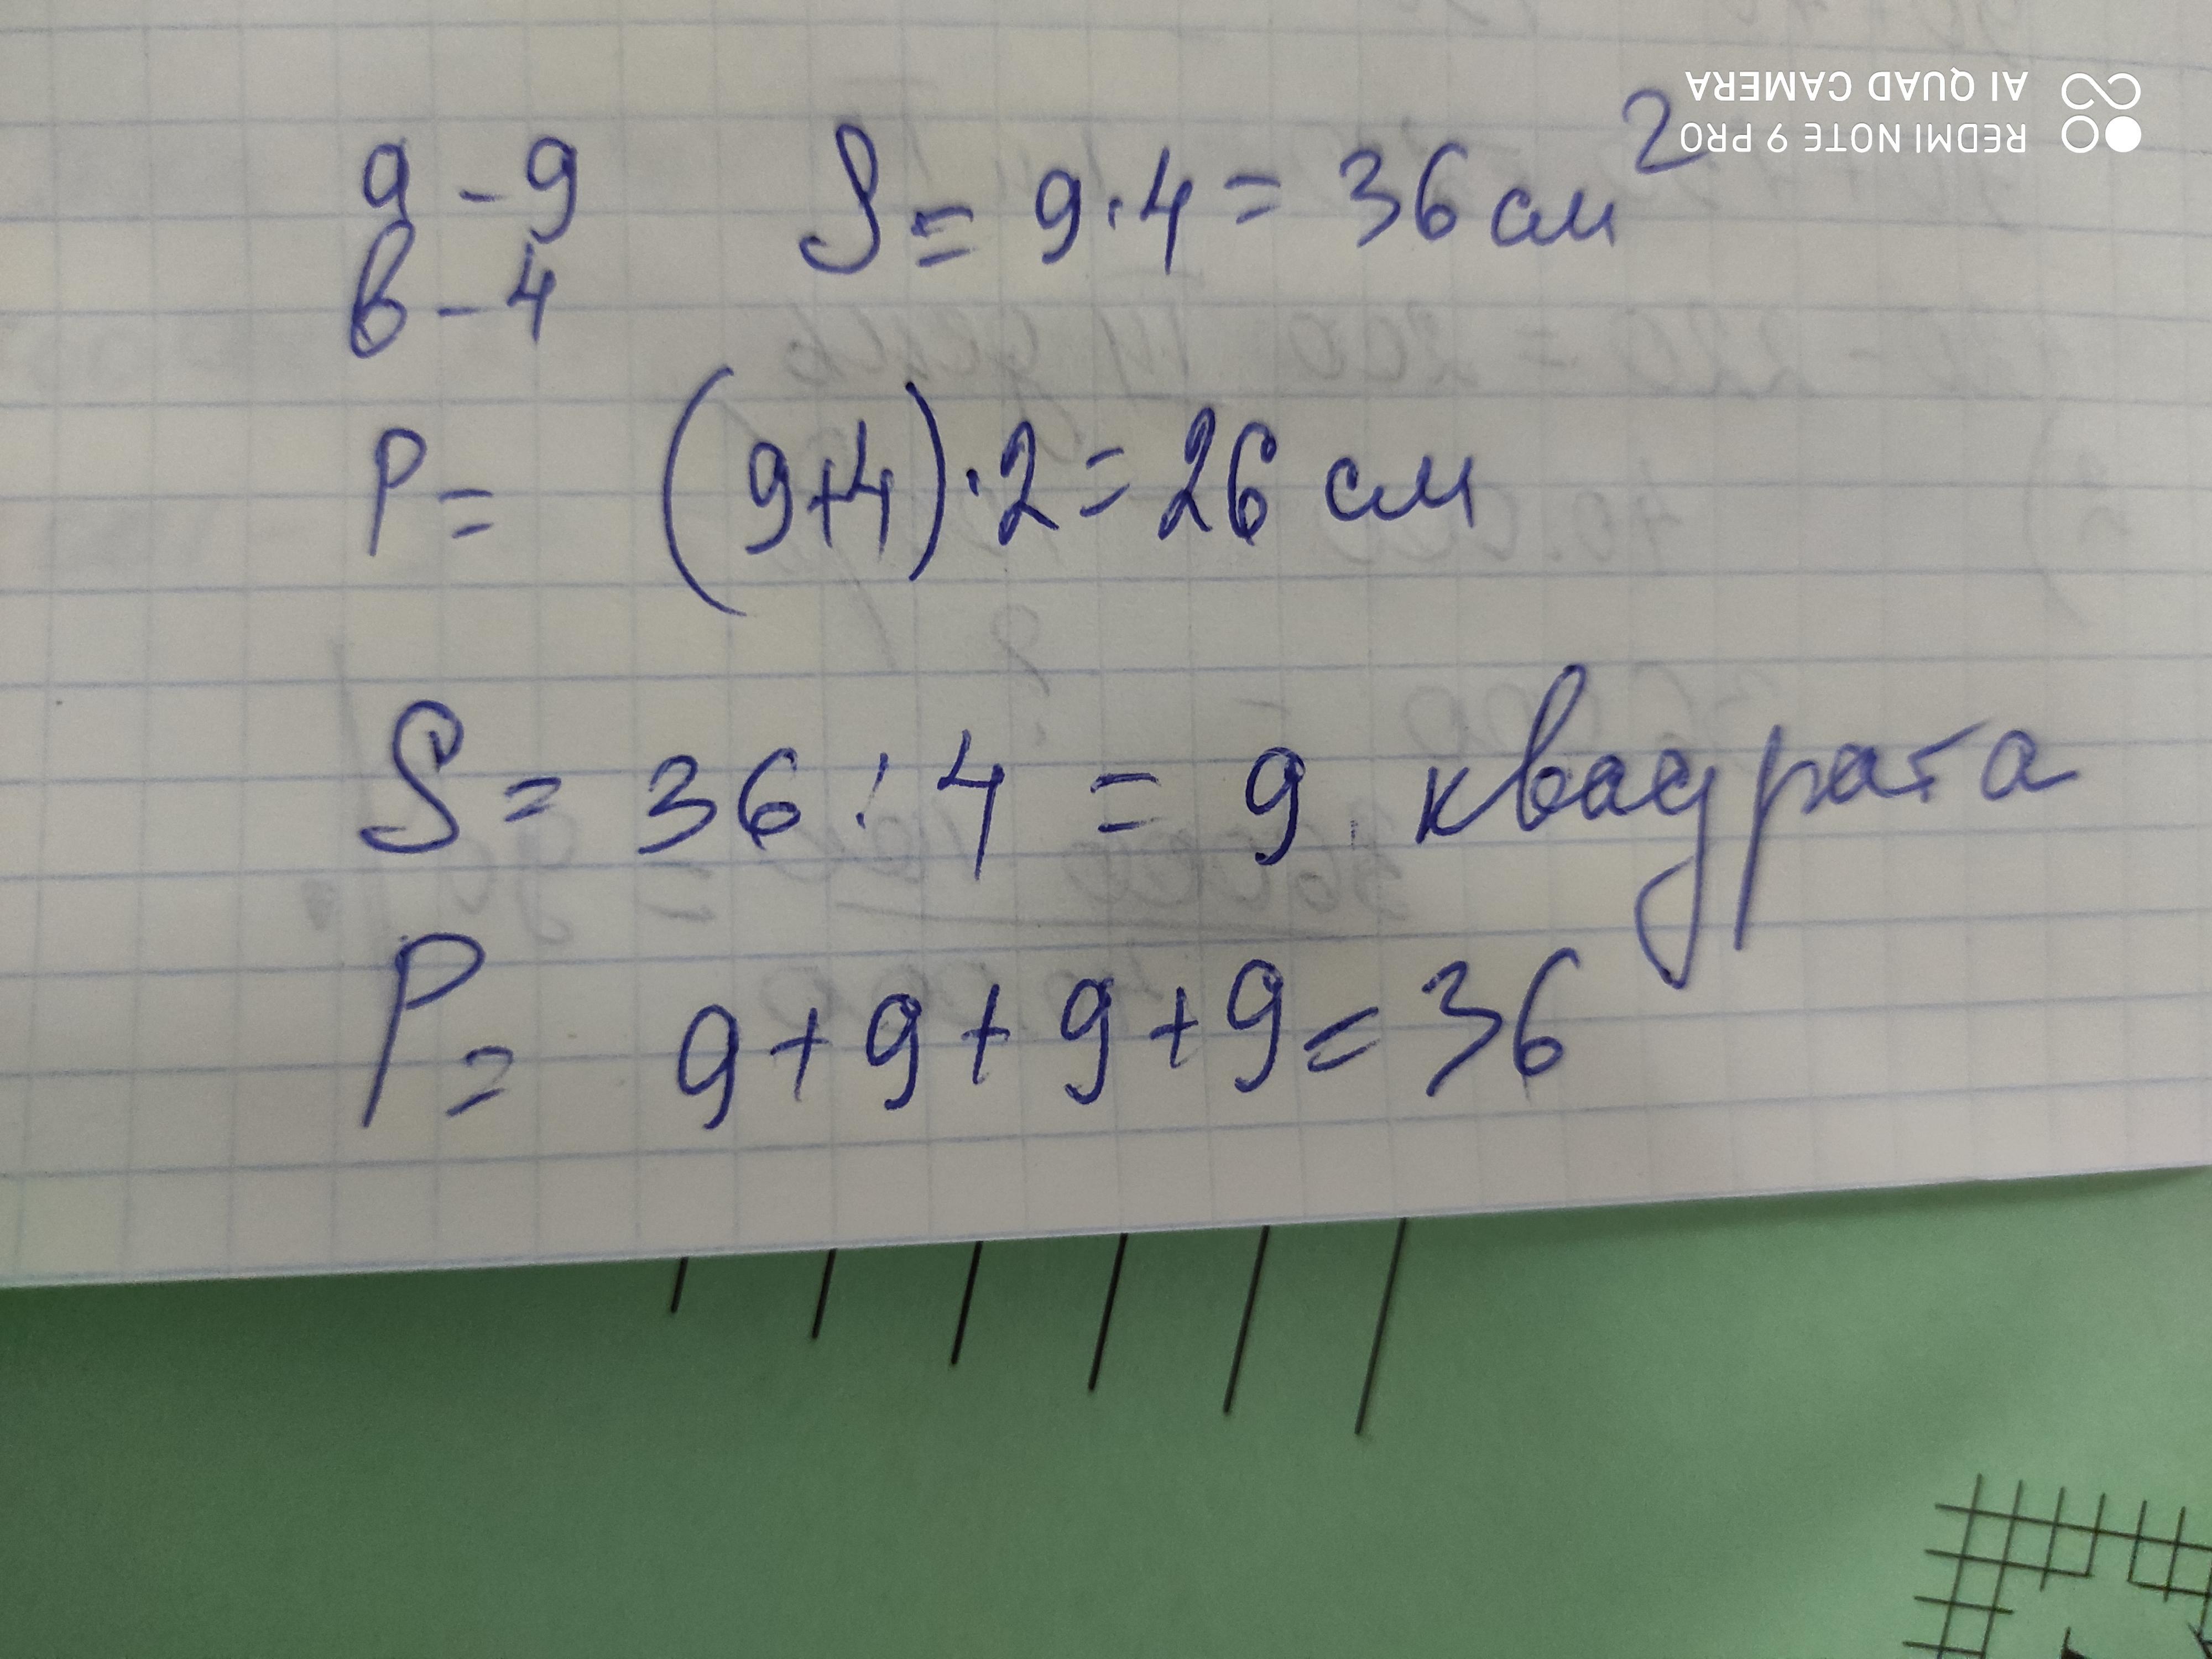 а - 9 S = 9·4 = 36 см²
в - 4
P = (9+4)·2 = 26 см
S = 36 : 4 = 9 квадрата
P = 9 + 9 + 9 + 9 = 36
REDMI NOTE 9 PRO
AI QUAD CAMERA